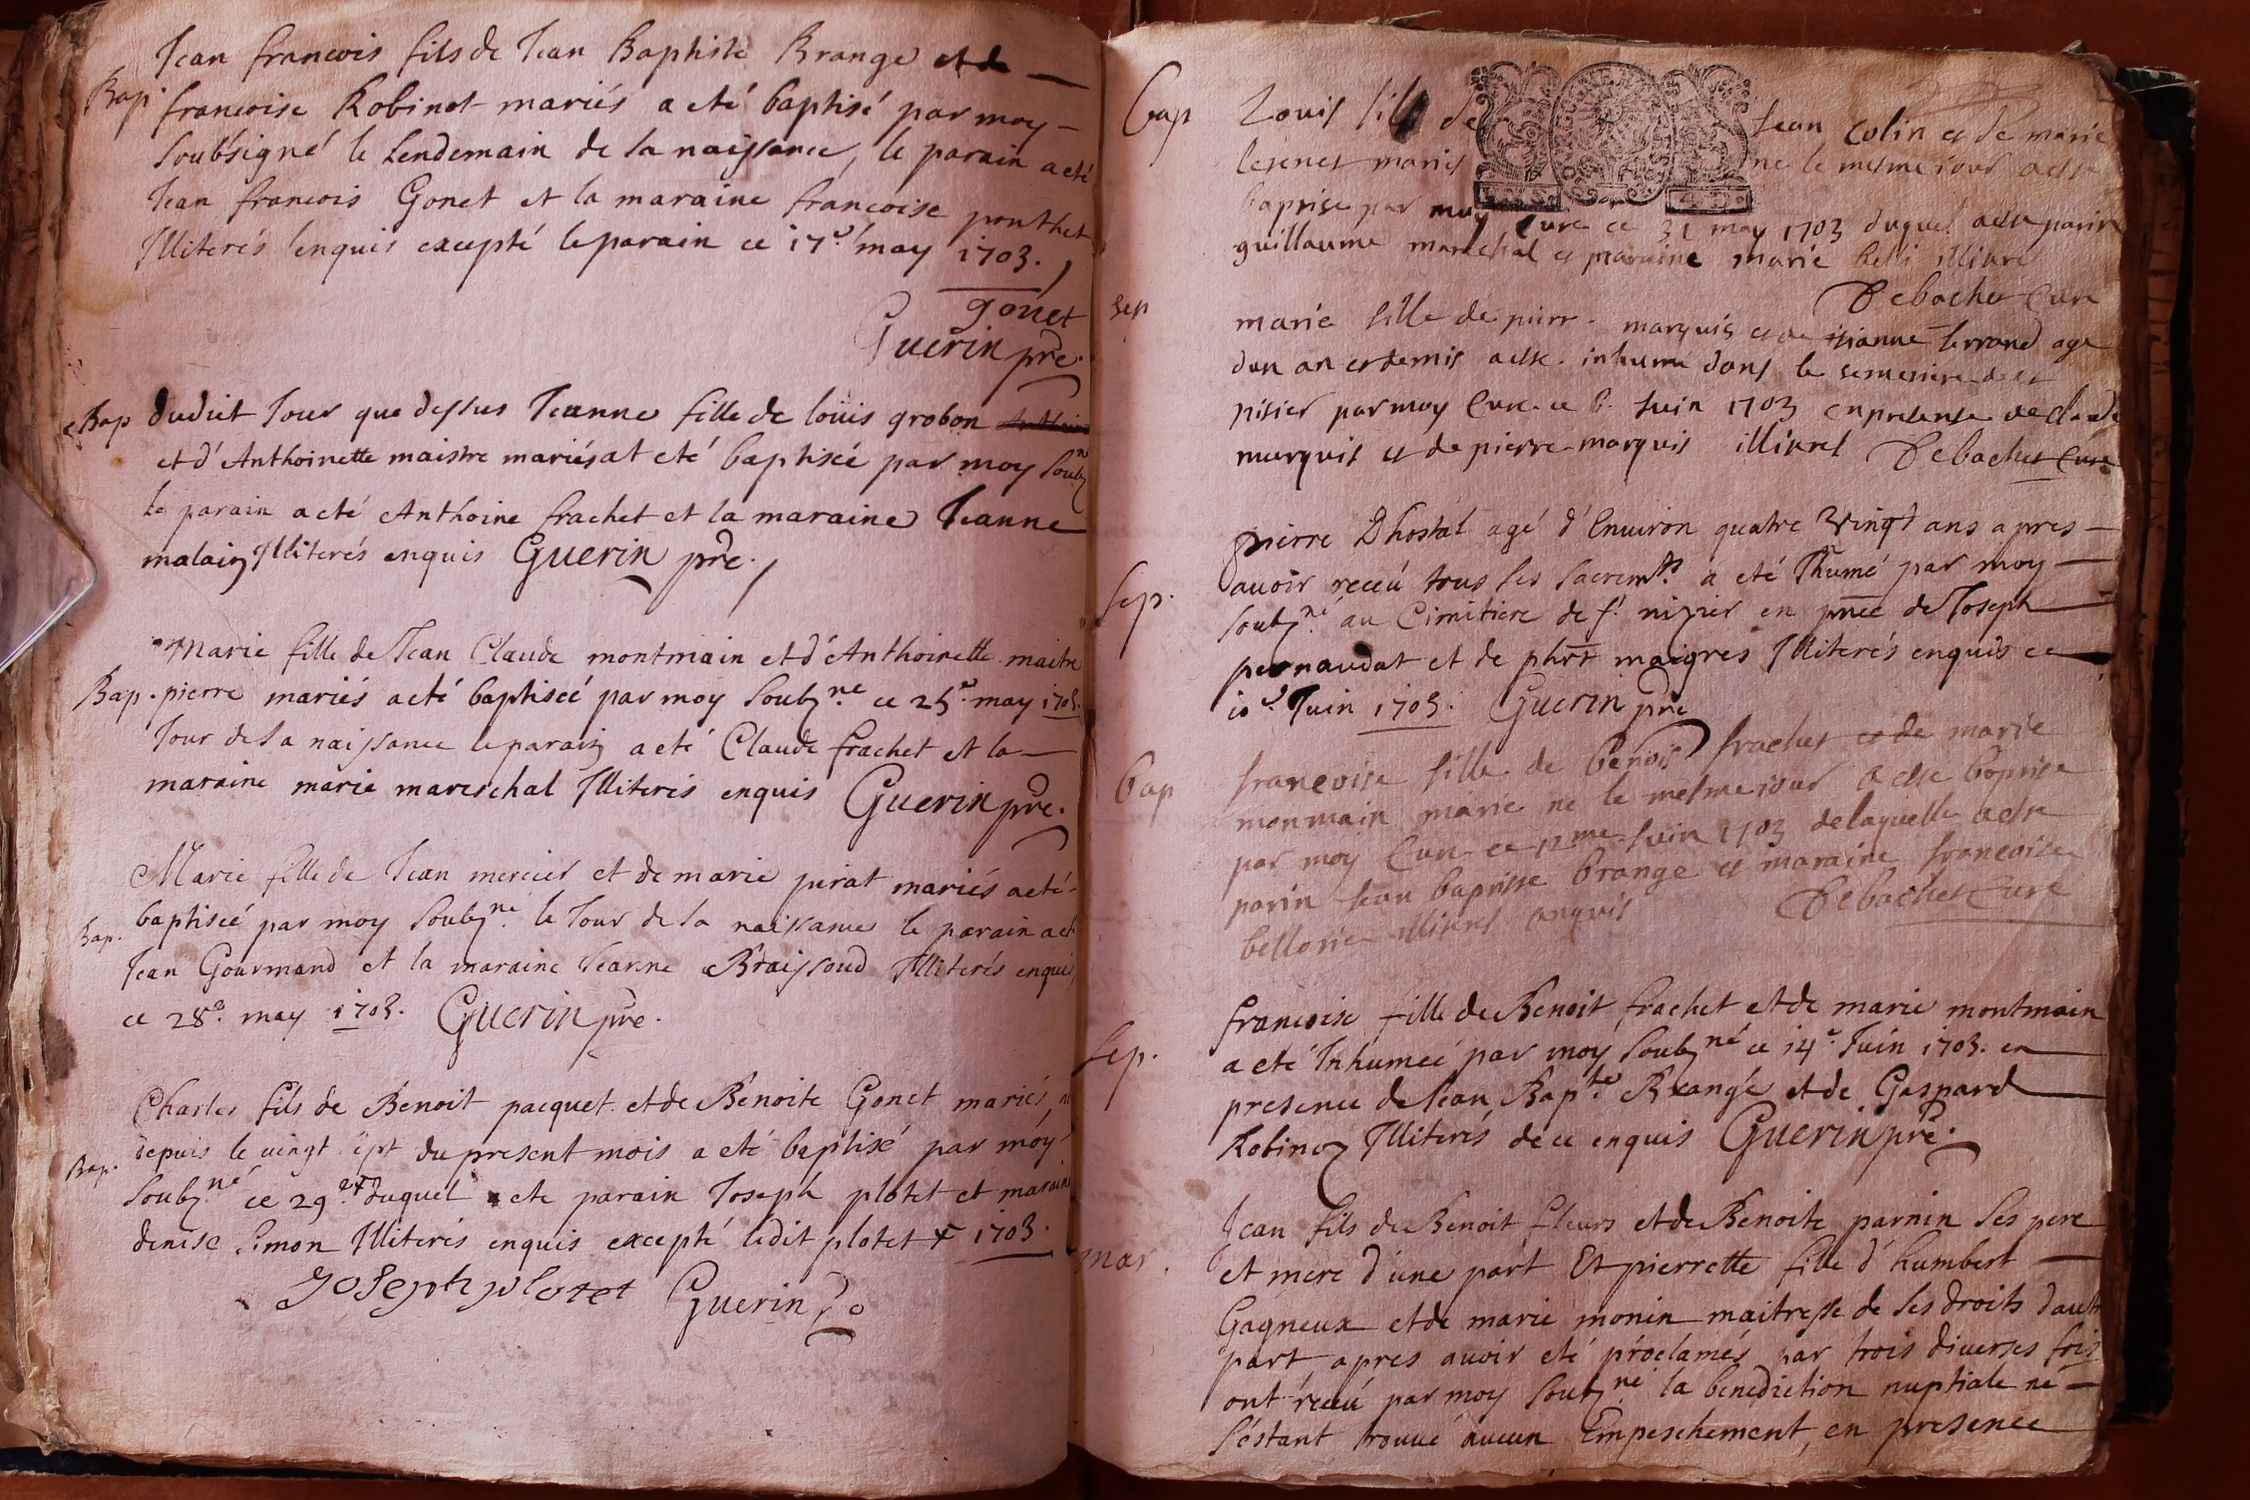 Jean francois fils de Jean Baptiste Brange et de
Bap. francoise Robinet mariés a eté baptisé par moy
soubsigné le Lendemain de sa naissance, le parain a eté
Jean francois Gonet et la maraine francoise ponthet
Illiterés enquis excepté le parain ce 17e may 1703.
gonet
Guerin pre.
Bap dudit Jour que dessus Jeanne fille de loüis grobon
et d'Anthoinette maistre mariés at eté baptiseé par moy soubne
le parain a eté Anthoine frachet et la maraine Jeanne
malain Illiterés enquis Guerin pre.
Marie fille de Jean Claude montmain et d'Anthoinette maitre
Bap. pierre mariés a eté baptiseé par moy soubzne ce 25e may 1703.
Jour de sa naissance le parain a eté Claude frachet et la
maraine marie mareschal Illiteris enquis Guerin pre.
Marie fille de Jean mercier et de marie pirat mariés a eté
Bap. baptiseé par moy soubzné le Jour de sa naissance le parain a eté
Jean Gourmand et la maraine Jeanne Braissoud Illiterés enquis
ce 28e. may 1703. Guerin pre.
Charles fils de Benoit pacquet et de Benoite Gonet mariés, né
depuis le vingt sept du present mois a eté baptisé par moy
Bap. soubzné ce 29e + duquel a ete parain Joseph plotet et maraine
denise simon Illiterés enquis excepté ledit plotet + 1703.
Joseph plotet Guerin
bap Louis fils de Jean colin et de marie
mariés ne le mesme iour a este
baptise par moy Cure ce 31 may 1703 duquel a este parin
guillaume marechal et maraine marie illitres
Debachet Cure
Sep marie fille de pierre marquis et de terrand age
dun an et demis a este inhume dans le semetiere de st
nisier par moy Cure ce 6. Juin 1703 en presense de claude
marquis et de pierre marquis illitres Debachet Cure
pierre Dhostal agé d'Enuiron quatre vingt ans apres
auoir receü tous ses sacremts. a eté Jhumé par moy
Sep. soubzné. au Cimitiere de st. nizier en pnce de Joseph
pernaudat et de phrt maigres Illiterés enquis ce
10e. Juin 1703. Guerin pre
Bap francoise fille de benoist frachet et de marie
monmain marie ne le mesme iour a este baptise
par moy Cure ce 12me Juin 1703 de laquelle a este
parin Jean baptiste brange et maraine francoise
bellorie illitres enquis Debachet Cure
francoise fille de Benoit frachet et de marie montmain
Sep. a eté Inhumeé par moy soubzné ce 14e. Juin 1703. en
presence de Jean Bapte Brange et de Gaspard
Robinez Illiterés de ce enquis Guerin pre.
Jean fils de Benoit fleurs et de Benoite parnin ses pere
mar. et mere d'une part Et pierrette fille d'humbert
Gagneux et de marie monin maitresse de ses droits d'autre
part apres auoir eté proclamés par trois diverses fois
ont receü par moy soubzné la benediction nuptiale ne
s'éstant trouué aucun Empeschement, en presence